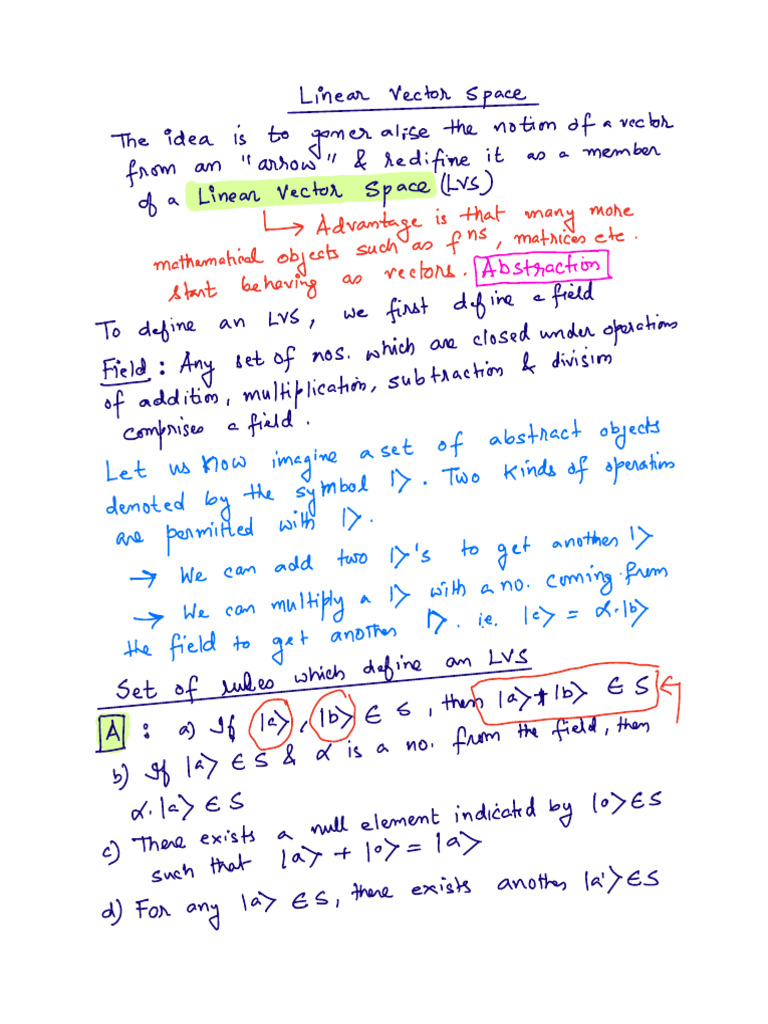 Linear Vector Space
The idea is to generalise the notion of a vector
from an "arrow" & redifine it as a member
of a Linear Vector Space (LVS)
↳ Advantage is that many more
mathematical objects such as fⁿˢ, matrices etc.
start behaving as vectors. Abstraction
To define an LVS, we first define a field
Field : Any set of nos. which are closed under operations
of addition, multiplication, subtraction & division
comprises a field.
Let us now imagine a set of abstract objects
denoted by the symbol |>. Two kinds of operations
are permitted with |>.
→ We can add two |>'s to get another |>
→ We can multiply a |> with a no. coming from
the field to get another |>. i.e. |c> = α.|b>
Set of rules which define an LVS
A : a) If |a>, |b> ∈ S, then |a>+|b> ∈ S
b) If |a> ∈ S & α is a no. from the field, then
α.|a> ∈ S
c) There exists a null element indicated by |0> ∈ S
such that |a> + |0> = |a>
d) For any |a> ∈ S, there exists another |a'> ∈ S